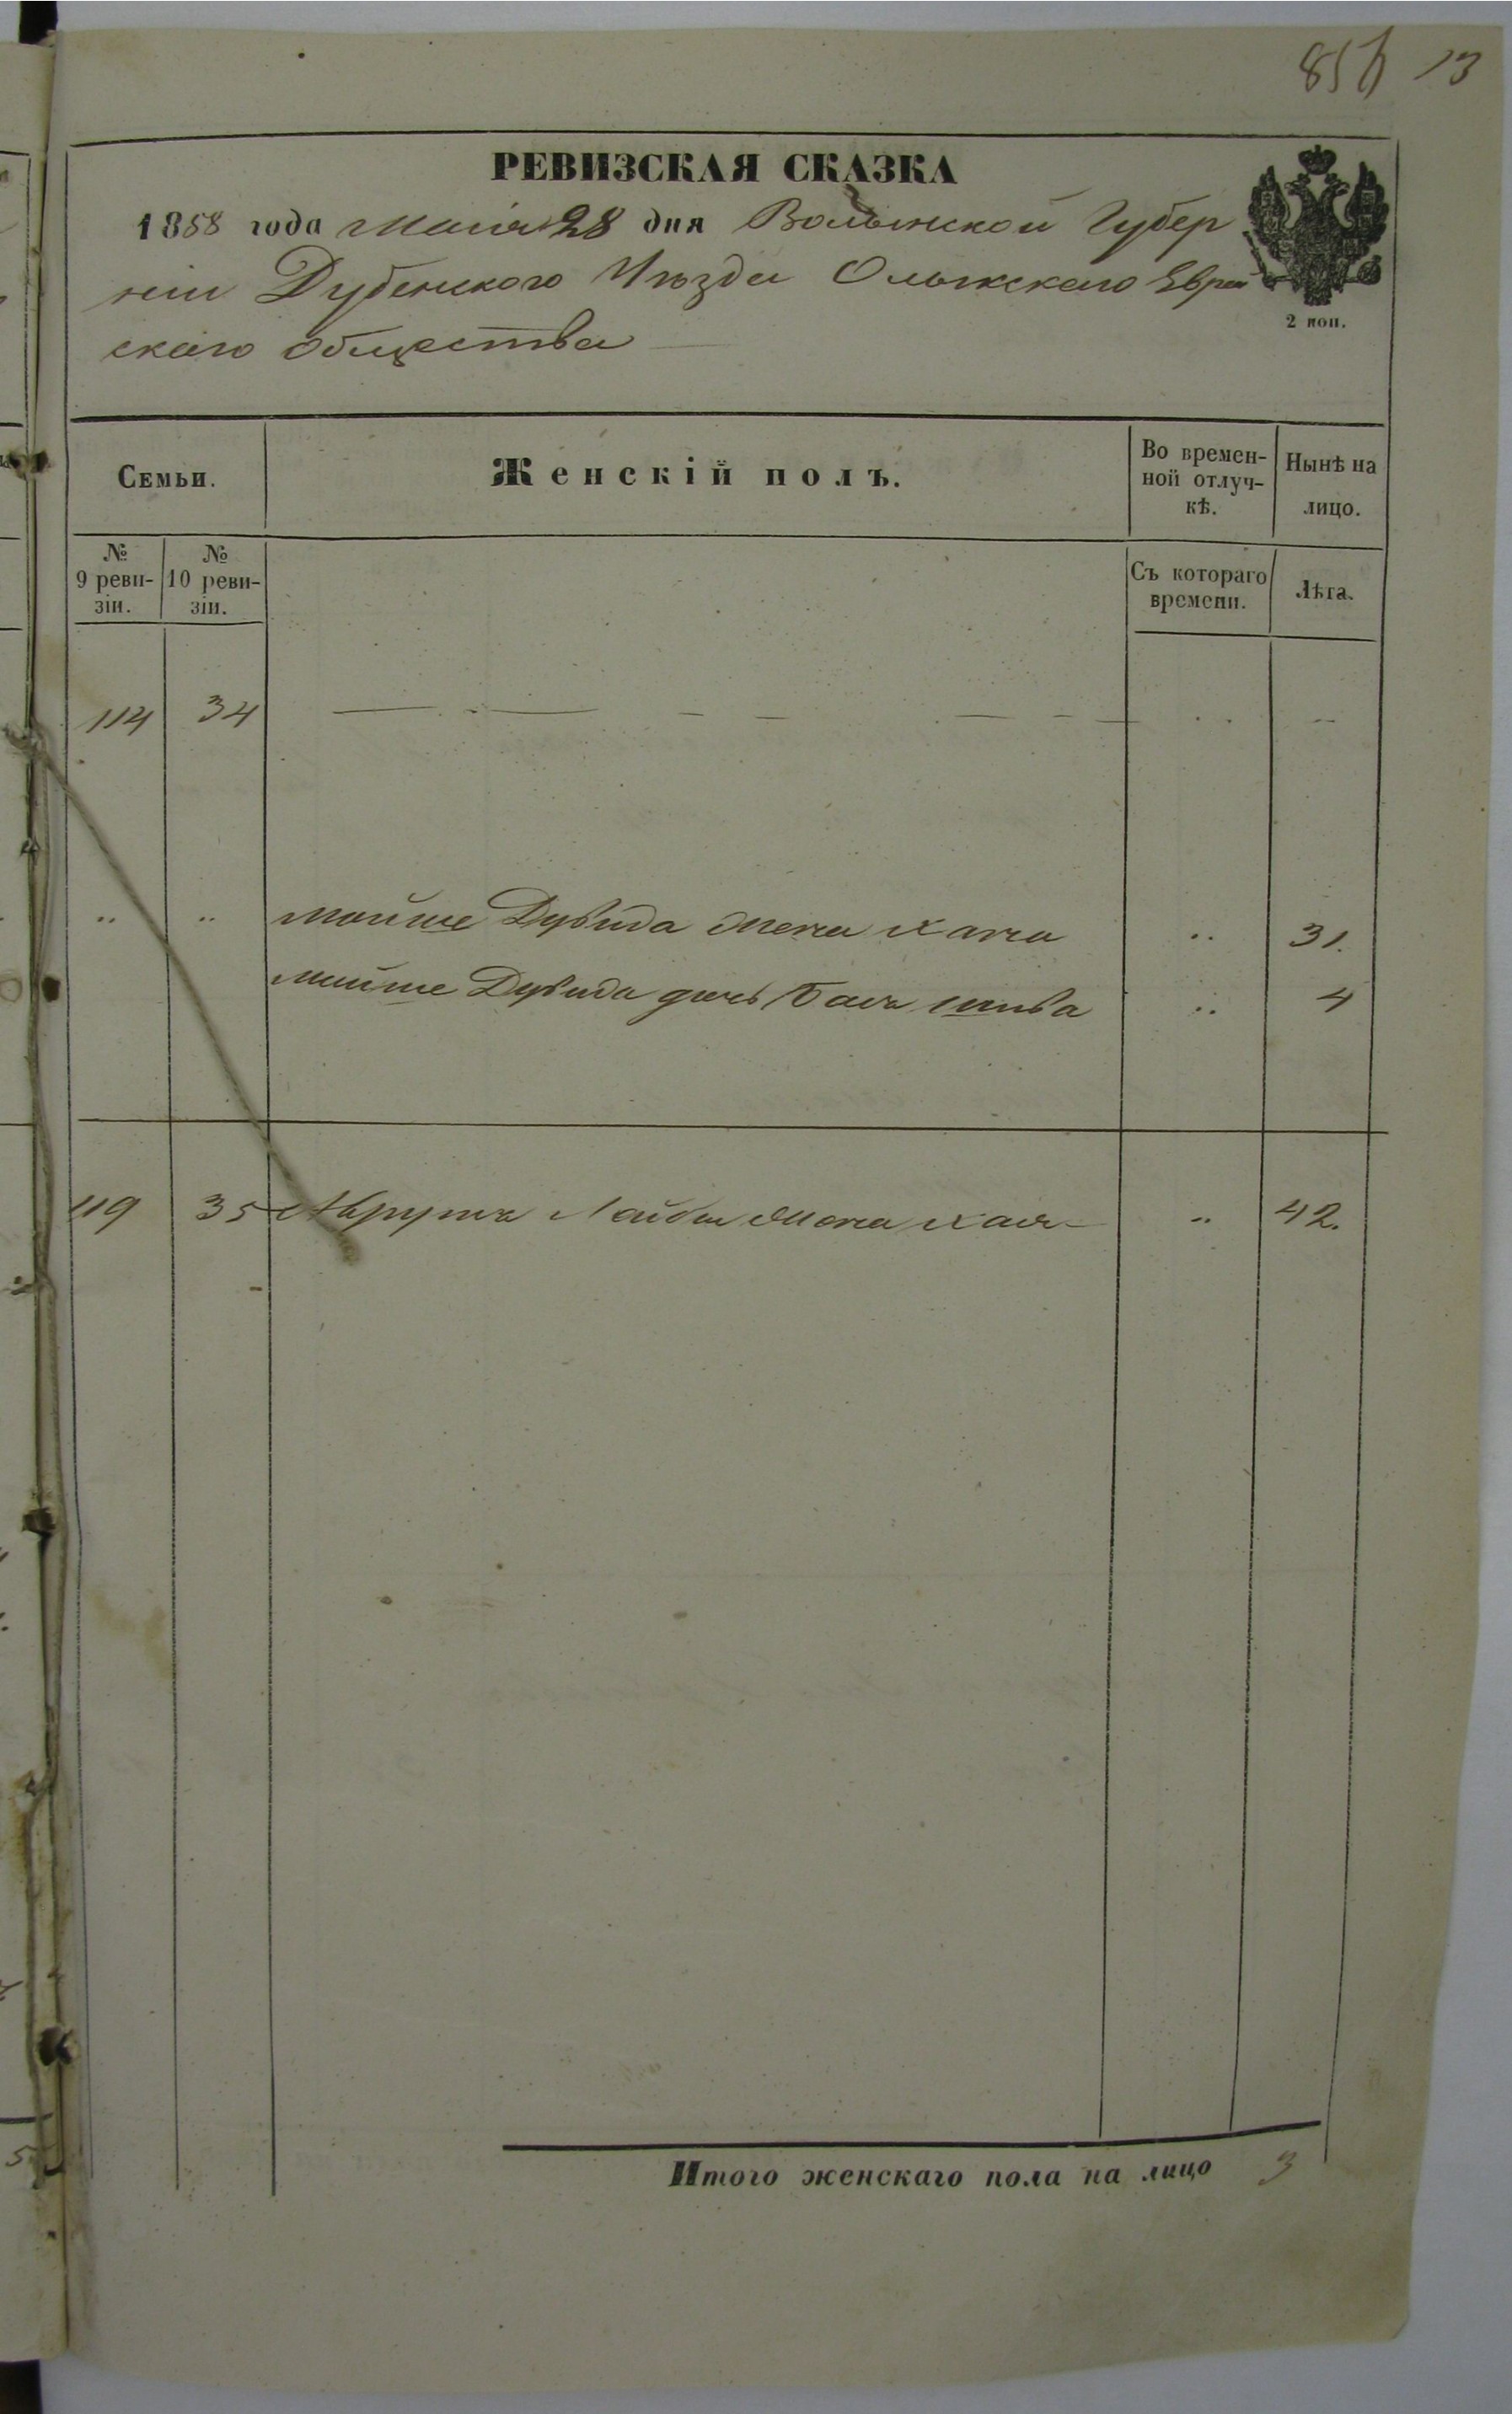 856 13
РЕВИЗСКАЯ СКАЗКА
1858 года Маія 28 дня Волынской Губер
ніи Дубенского Уѣзда Олыкскаго Еврей
скаго общества
2 коп.
Семьи.
Женскій полъ.
Во времен-
ной отлуч-
кѣ.
Нынѣ на
лицо.
№
9 реви-
зіи.
№
10 реви-
зіи.
Съ котораго
времени.
Лѣта.
114 34
" " Мойше Дувида жена Хана " 31.
Мойше Дувида дочь Бася Шива " 4
119 35 Лейбы жена Хая " 42.
Итого женскаго пола на лицо 3